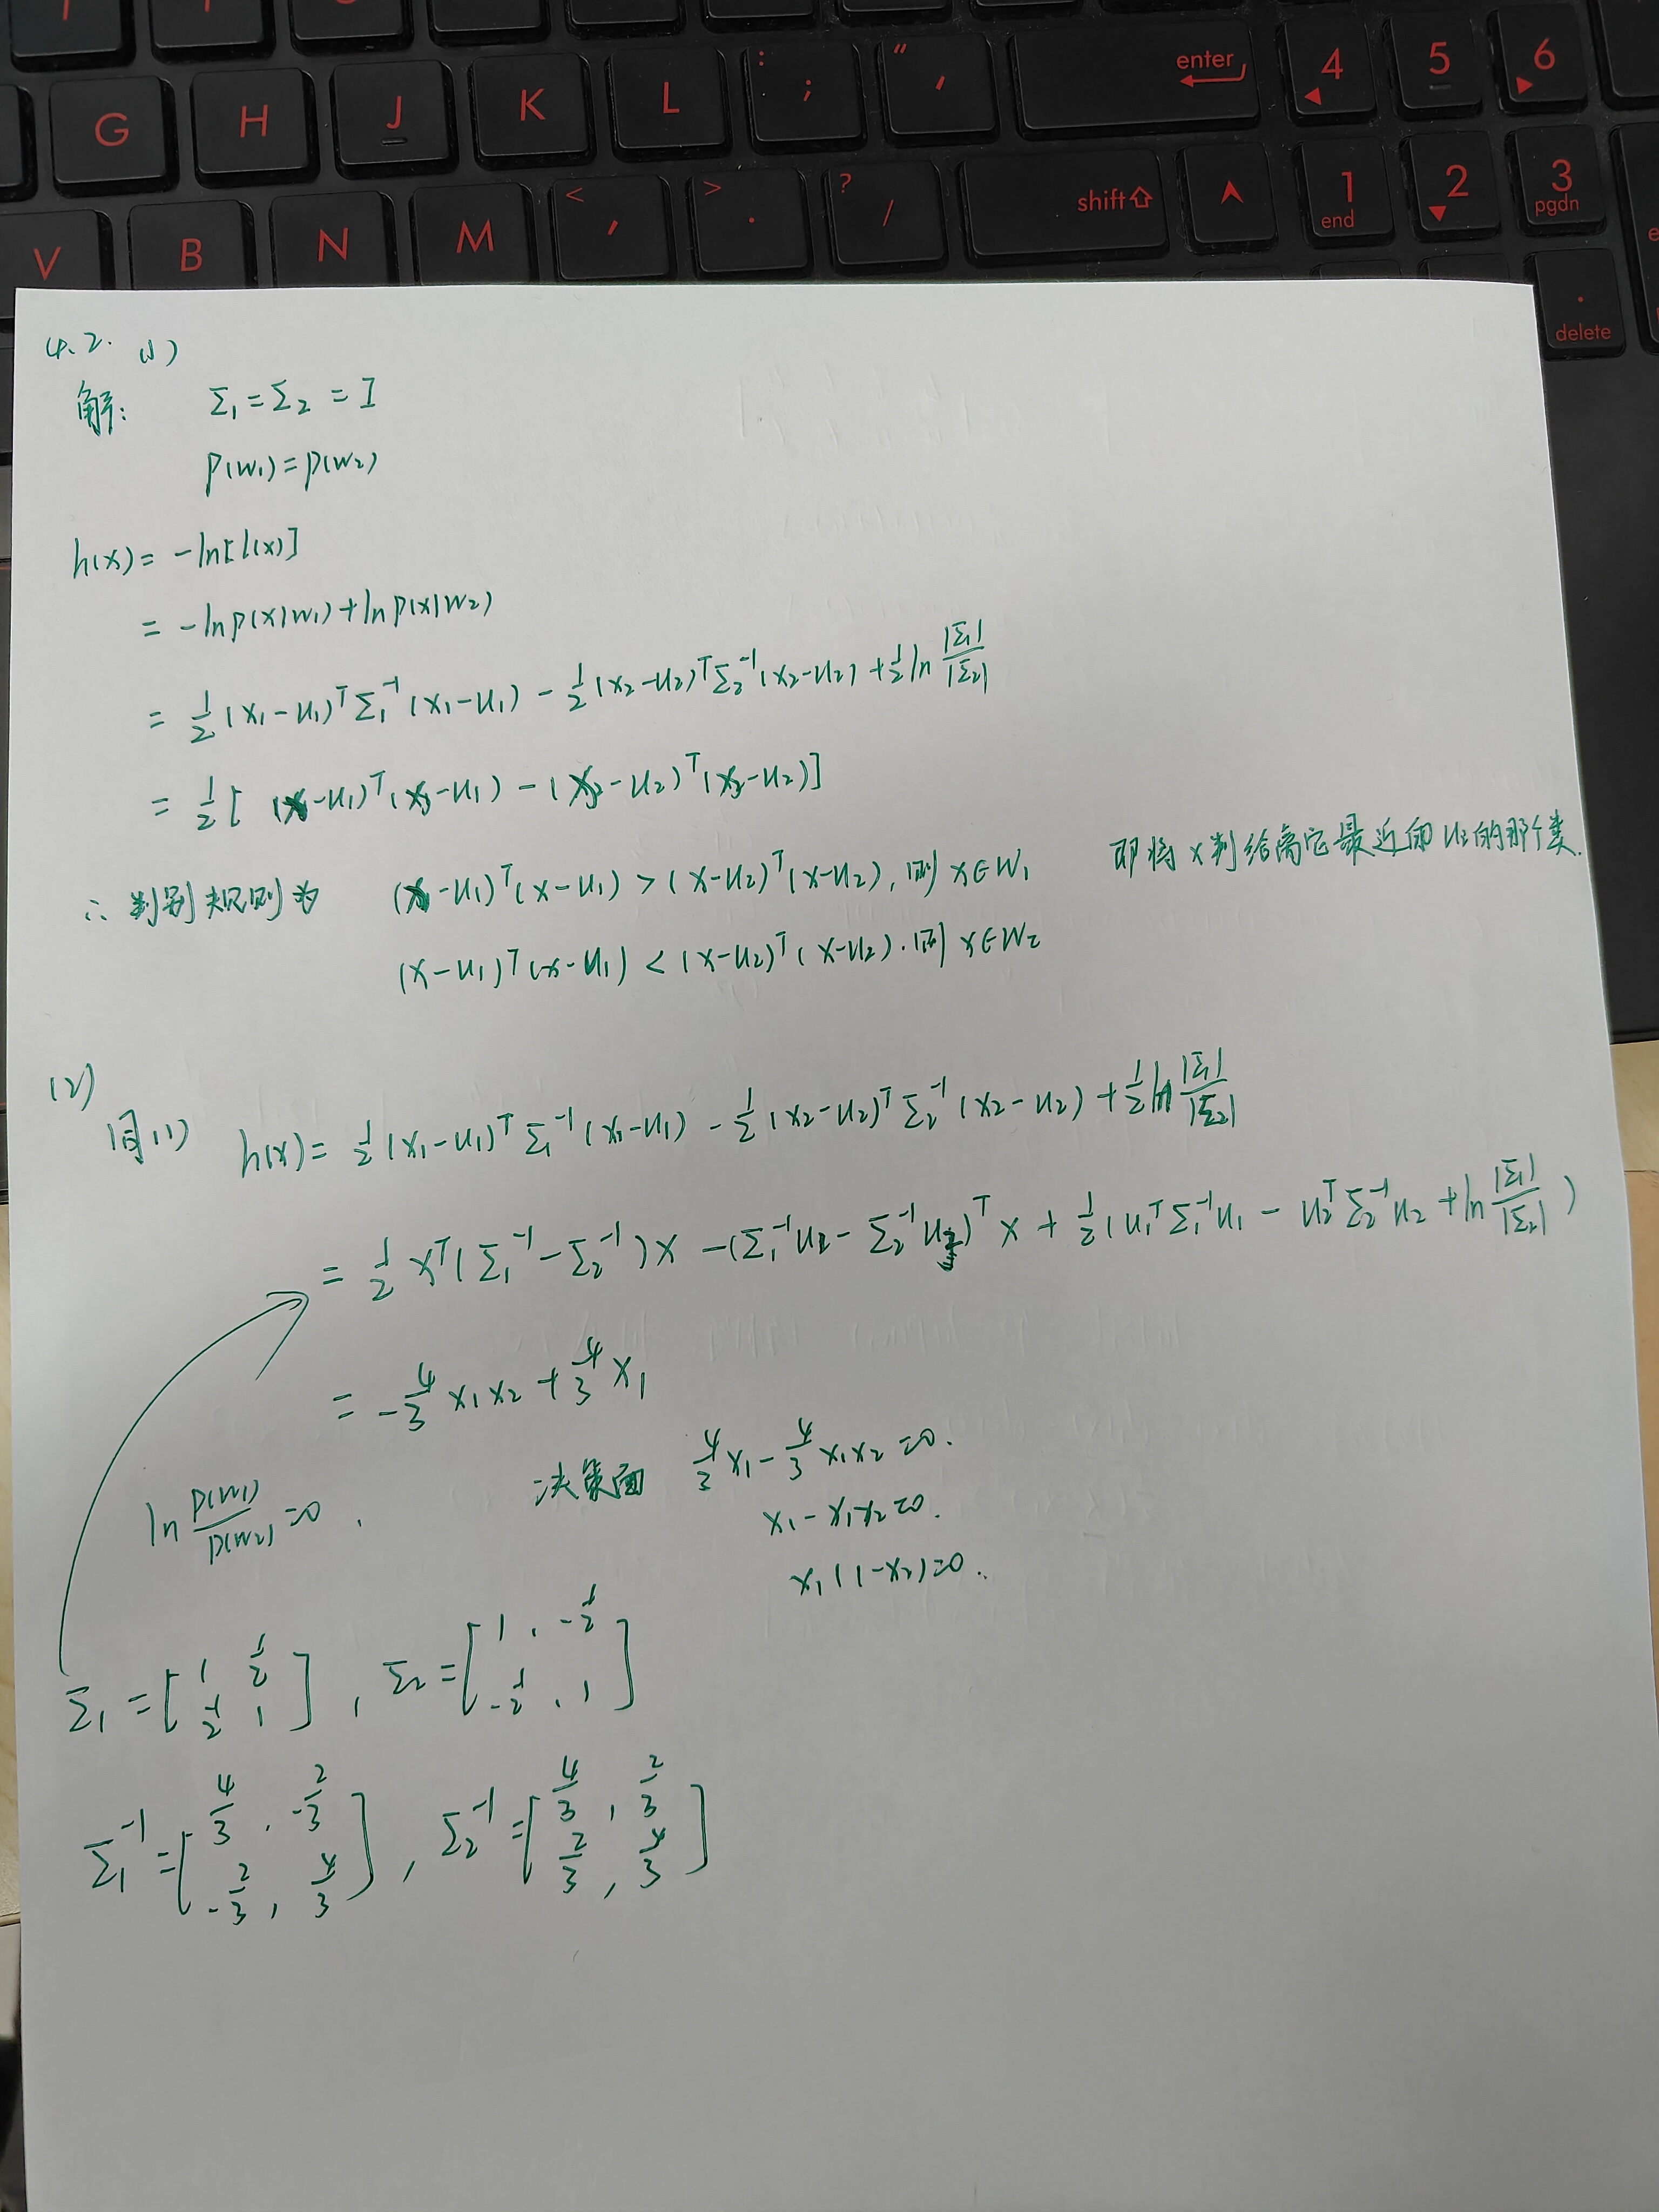 G H J K L : ; " ' enter 4 5 6
V B N M < , > . ? / shift 1 end 2 3 pgdn
. delete
4.2. (1)
解: Σ₁ = Σ₂ = I
P(w₁) = P(w₂)
h(x) = -ln[l(x)]
= -lnp(x|w₁) + lnp(x|w₂)
= ½(x₁-u₁)ᵀΣ₁⁻¹(x₁-u₁) - ½(x₂-u₂)ᵀΣ₂⁻¹(x₂-u₂) + ½ln|Σ₁|/|Σ₂|
= ½[(x-u₁)ᵀ(x-u₁) - (x-u₂)ᵀ(x-u₂)]
∴ 判别规则为 (x-u₁)ᵀ(x-u₁) > (x-u₂)ᵀ(x-u₂), 则 x∈W₁ 即将x判给离它最近的uᵢ的那个类.
(x-u₁)ᵀ(x-u₁) < (x-u₂)ᵀ(x-u₂). 则 x∈W₂
(2)
同(1) h(x) = ½(x₁-u₁)ᵀΣ₁⁻¹(x₁-u₁) - ½(x₂-u₂)ᵀΣ₂⁻¹(x₂-u₂) + ½ln|Σ₁|/|Σ₂|
= ½xᵀ(Σ₁⁻¹-Σ₂⁻¹)x - (Σ₁⁻¹u₁ - Σ₂⁻¹u₂)ᵀx + ½(u₁ᵀΣ₁⁻¹u₁ - u₂ᵀΣ₂⁻¹u₂ + ln|Σ₁|/|Σ₂|)
= -4/3 x₁x₂ + 4/3 x₁
ln P(w₁)/P(w₂) = 0 , 决策面 4/3 x₁ - 4/3 x₁x₂ = 0.
x₁ - x₁x₂ = 0.
x₁(1-x₂) = 0.
Σ₁ = [1 ½; ½ 1], Σ₂ = [1, -½; -½, 1]
Σ₁⁻¹ = [4/3, -2/3; -2/3, 4/3], Σ₂⁻¹ = [4/3, 2/3; 2/3, 4/3]